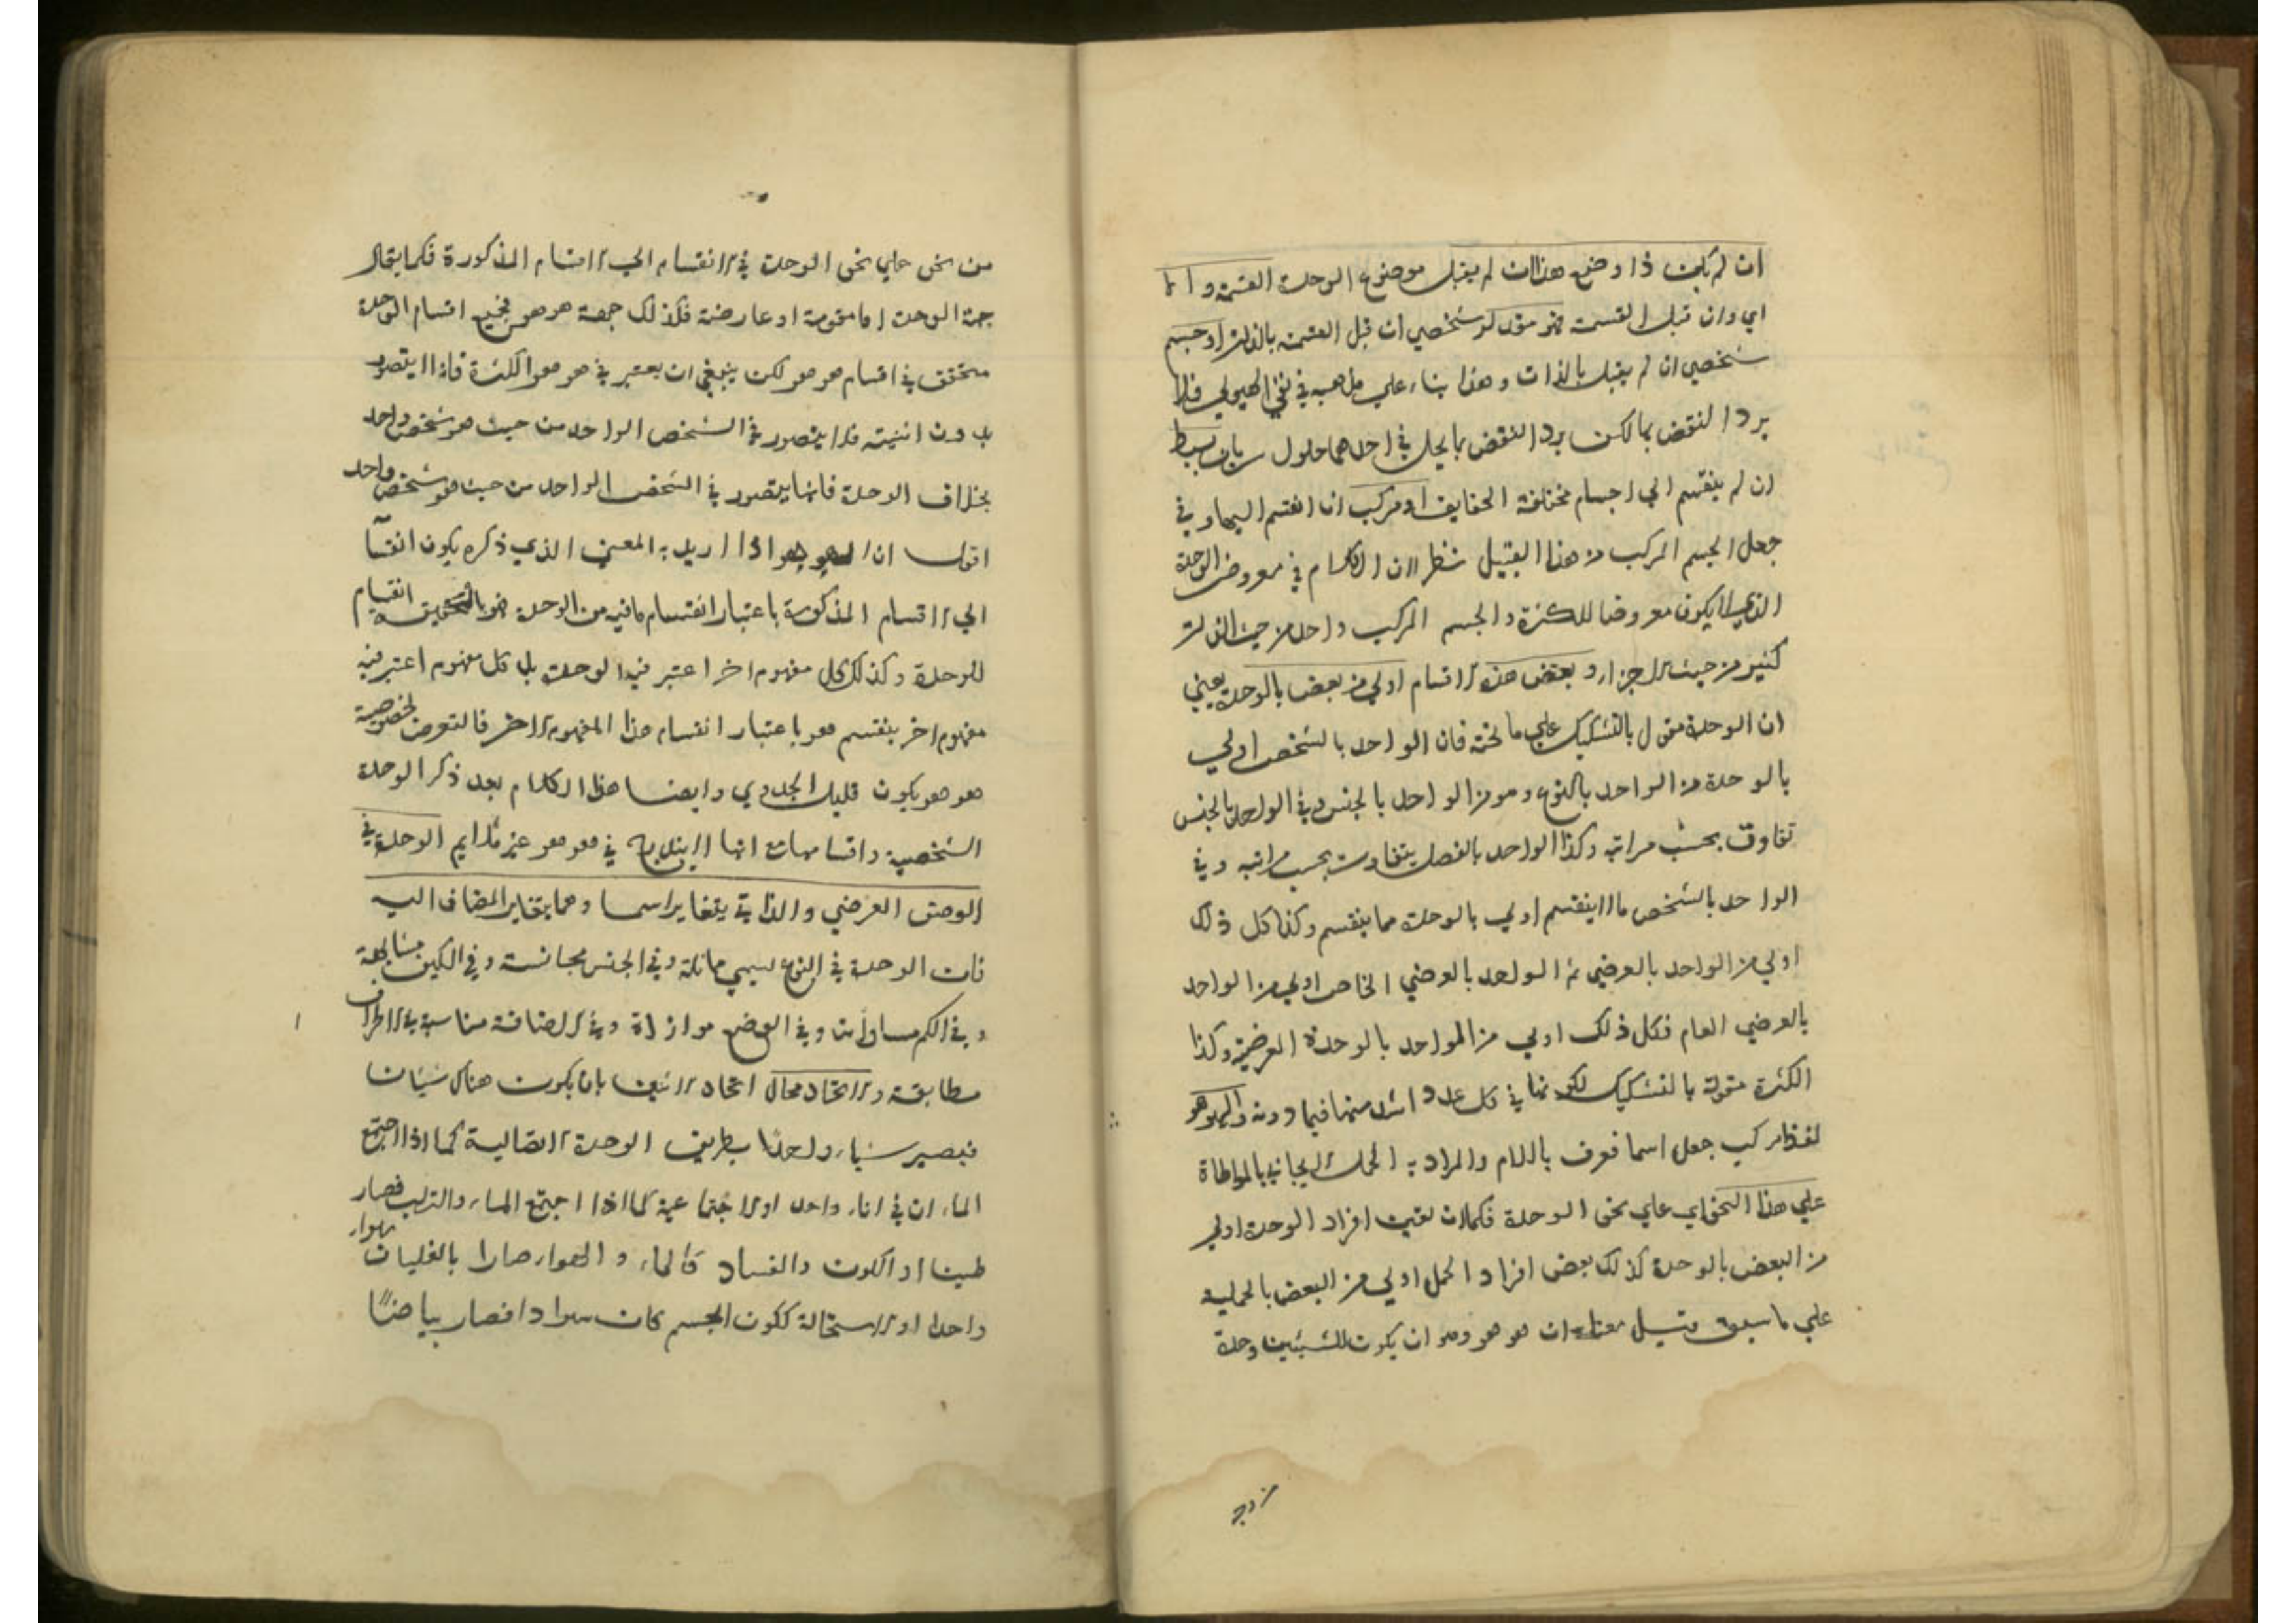 ان لم يكن ذا وضع هذا ان لم يقبل موضوع الوحدة القسمة والا
اي وان قبل القسمة فهو مقدار شخصي ان قبل القسمة بالذات او جسم
شخصي ان لم يقبل بالذات وهذا بناء علي مذهبه في نفي الهيولي فلا
يرد النقض بها لكن يرد النقض بما يحل في احدهما حلول سريان بسيط
ان لم ينقسم الي اجسام مختلفة الحقايق او مركب ان انقسم اليها وفي
جعل الجسم المركب من هذا القبيل نظر لان الكلام في معروض الوحدة
الذي لا يكون معروضا للكثرة والجسم المركب واحد من حيث الذات
كثير من حيث الاجزاء وبعض هذه الاقسام اولي من بعض بالوحدة يعني
ان الوحدة مقول بالتشكيك علي ما تحته فان الواحد بالشخص اولي
بالوحدة من الواحد بالنوع وهو من الواحد بالجنس وفي الواحد بالجنس
تفاوت بحسب مراتبه وكذا الواحد بالفصل يتفاوت بحسب مراتبه وفي
الواحد بالشخص ما لا ينقسم اولي بالوحدة مما ينقسم وكذا كل ذلك
اولي من الواحد بالعرضي ثم الواحد بالعرضي الخاص اولي من الواحد
بالعرضي العام فكل ذلك اولي من الواحد بالوحدة العرضية وكذا
الكثرة مقولة بالتشكيك لكونها في كل عدد اشد منها فيما دونه والهوهو
لفظ مركب جعل اسما فعرف باللام والمراد به الحمل الايجابي بالمواطاة
علي هذا النحو اي علي نحو الوحدة فكما ان بعض افراد الوحدة اولي
من البعض بالوحدة كذلك بعض افراد الحمل اولي من البعض بالحملية
علي ما سبق وقيل معناه ان هو هو وهو ان يكون للشيئين وحدة
من وجه
من نحو علي نحو الوحدة في الانقسام الي الاقسام المذكورة فكما يقال
جهة الوحدة اما مقومة او عارضة فكذلك جهة هو هو فجميع اقسام الوحدة
متحقق في اقسام هو هو لكن ينبغي ان يعتبر في هو هو الكثرة فانه لا يتصور
بدون اثنينية فلا يتصور في الشخص الواحد من حيث هو شخص واحد
بخلاف الوحدة فانها يتصور في الشخص الواحد من حيث هو شخص واحد
اقول ان الهوهو اذا اريد به المعني الذي ذكره يكون انقسا
الي الاقسام المذكورة باعتبار انقسام ما فيه من الوحدة فهو بالتحقيق انقسام
للوحدة وكذلك كل مفهوم اخر اعتبر فيه الوحدة بل كل مفهوم اعتبر فيه
مفهوم اخر ينقسم هو باعتبار انقسام هذا المفهوم الاخر فالتعرض لخصوصية
هو هو يكون قليل الجدوي وايضا هذا الكلام بعد ذكر الوحدة
الشخصية واقسامها مع انها لا يندرج في هو هو غير ملايم الوحدة في
الوصف العرضي والذاتي يتغاير اسما وهما بتغاير المضاف اليه
فان الوحدة في النوع يسمي مماثلة وفي الجنس مجانسة وفي الكيف مشابهة
وفي الكم مساواة وفي الوضع موازاة وفي الاضافة مناسبة وفي الاطراف
مطابقة والاتحاد محال اتحاد الاثنين بان يكون هناك شيئان
فيصير شيا واحدا بطريق الوحدة الاتصالية كما اذا اجتمع
الماءان في اناء واحد او الاجتماعية كما اذا اجتمع الماء والتراب فصار
طينا او الكون والفساد كالماء والهواء صارا بالغليان هواء
واحدا او الاستحالة ككون الجسم كان سوادا فصار بياضا